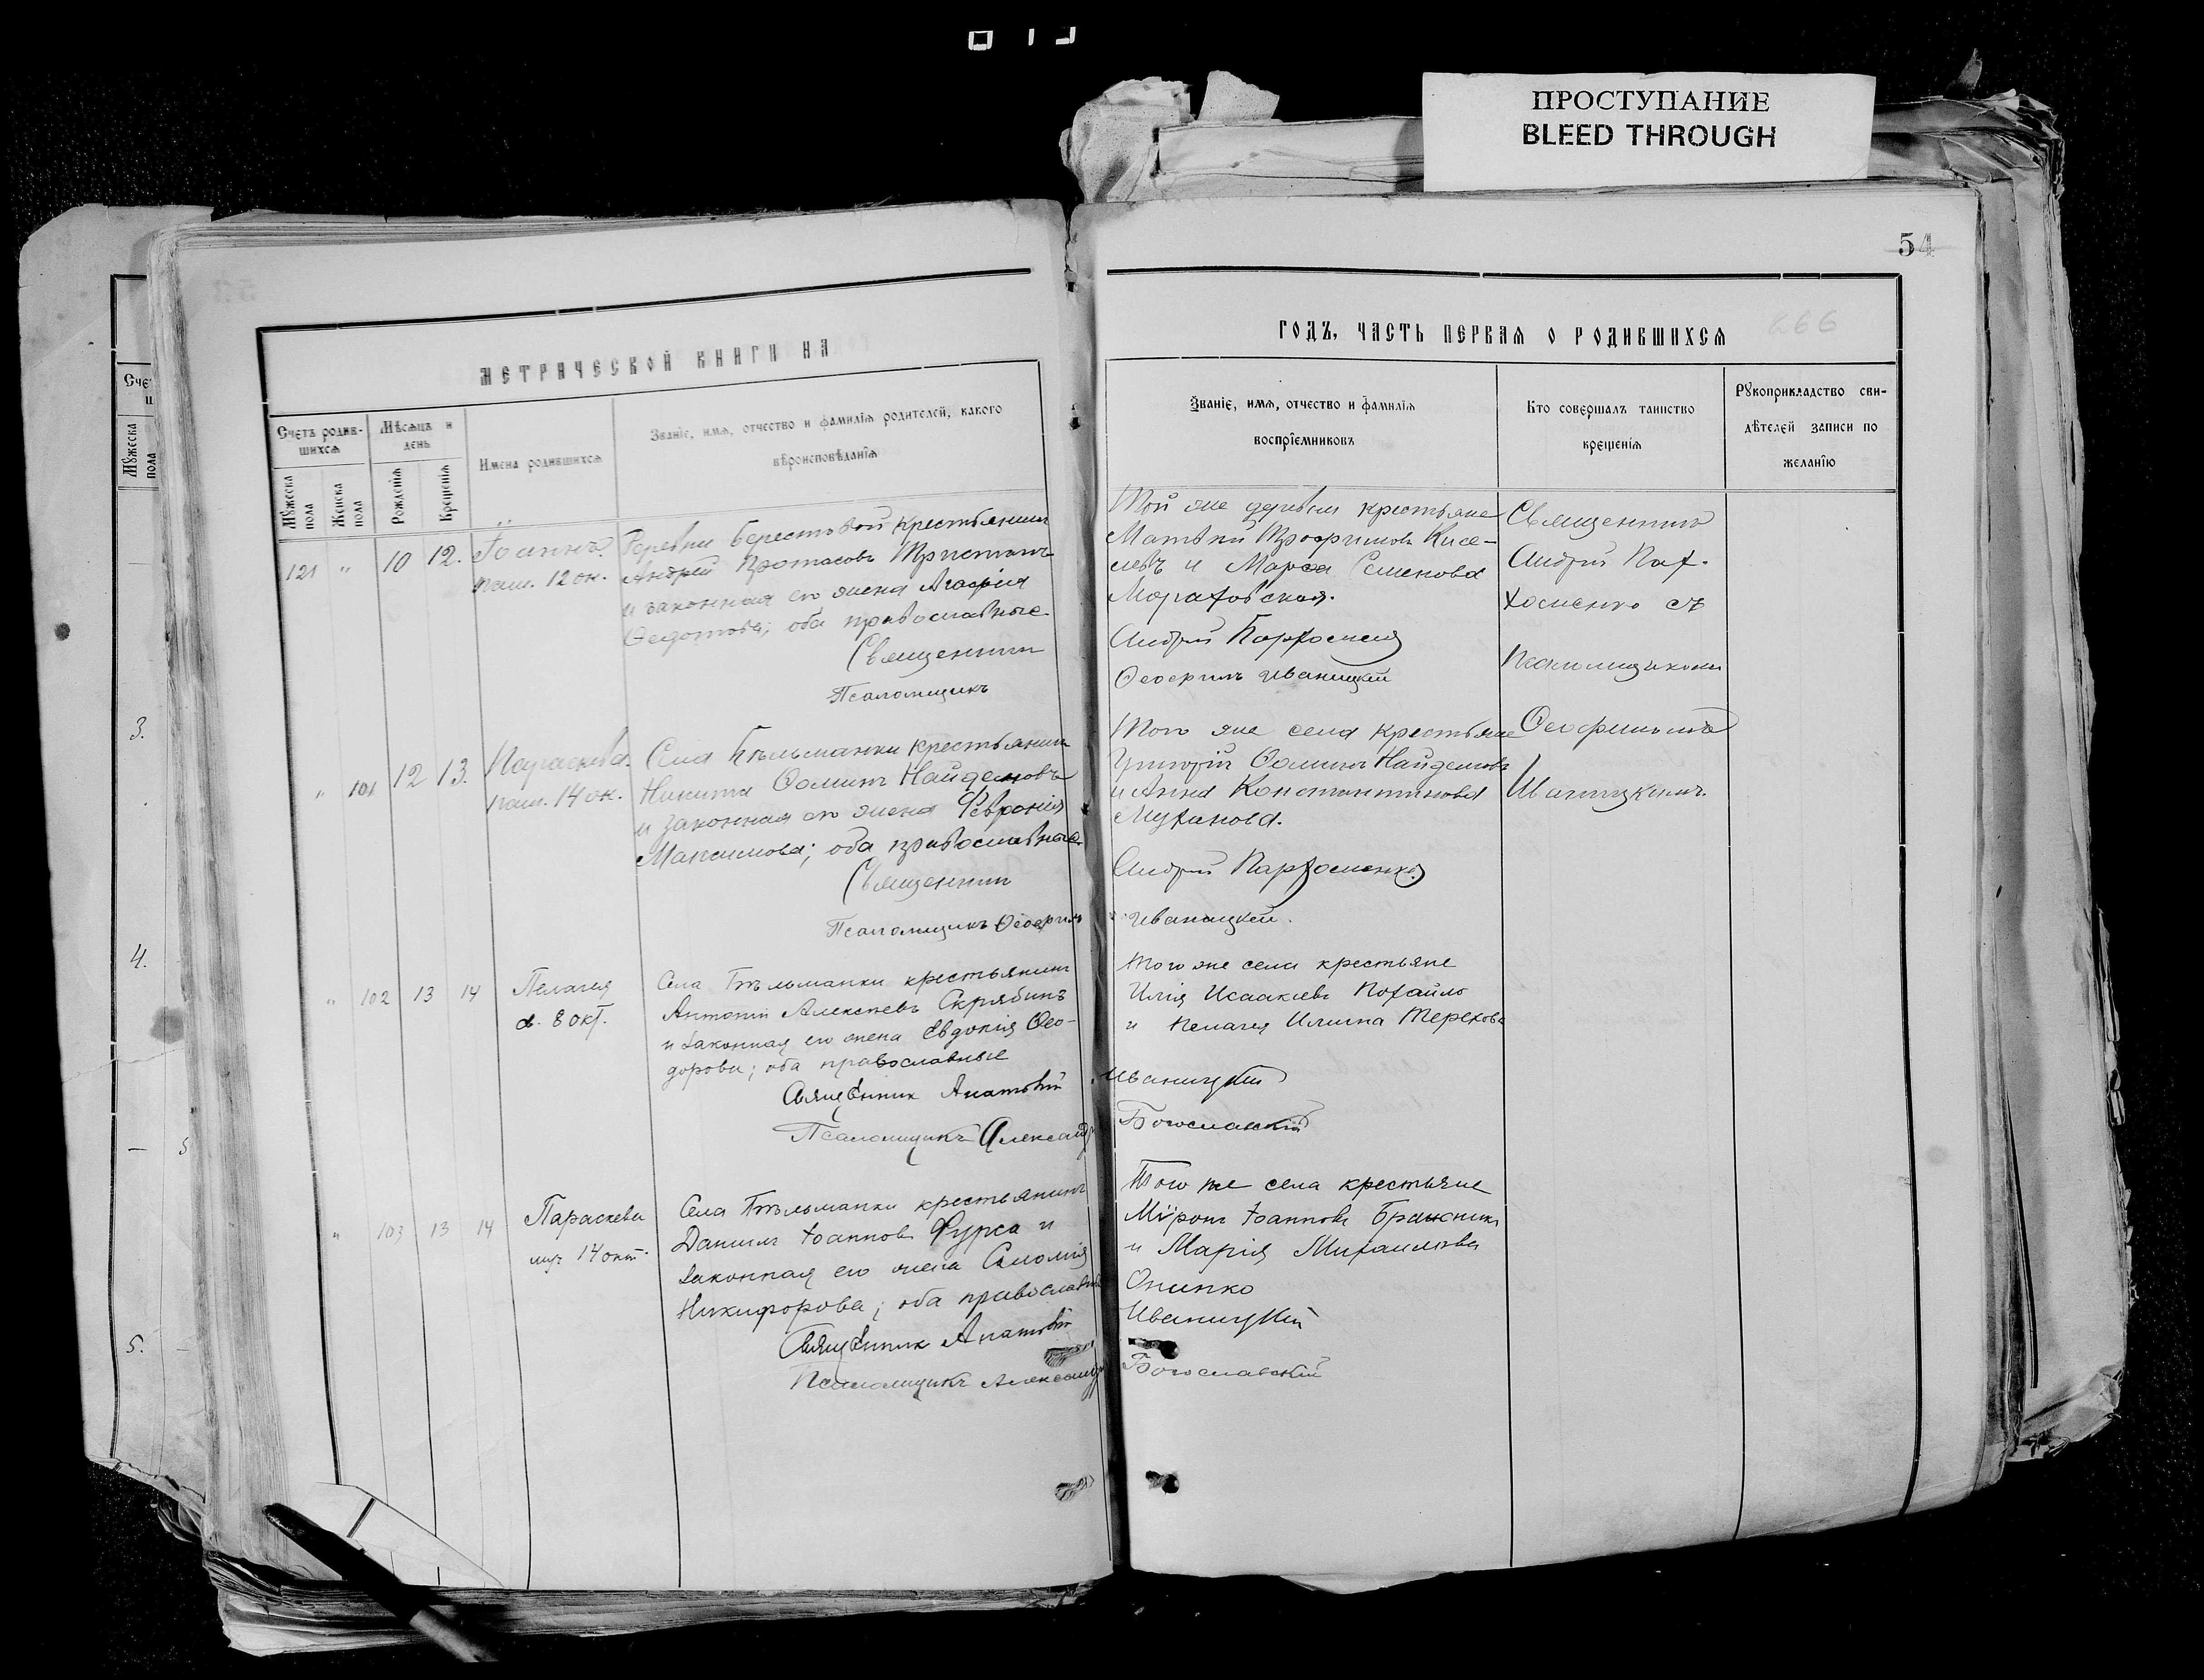 ПРОСТУПАНИЕ
BLEED THROUGH
54
МЕТРИЧЕСКОЙ КНИГИ НА
Счетъ родив-
шихся
Мѣсяцъ и
день
Мужеска
пола
Женска
пола
Рожденія
Крещенія
Имена родившихся
Званіе, имя, отчество и фамилія родителей, какого
вѣроисповѣданія
121 " 10 12. Іоаннъ.
пам. 12 ок.
Деревни Берестовой крестьянинъ
Андрей Протасовъ
и законная его жена Агафія
Федотова; оба православные
Священникъ
Псаломщикъ
" 101 12 13. Параскева.
пам. 14 ок.
Села Бѣльманки крестьянинъ
Никита Фоминъ Найденовъ
и законная его жена Феврония
Максимова; оба православные
Священникъ
Псаломщикъ Феофилъ
" 102 13 14 Пелагея
8 окт.
Села Бѣльманки крестьянинъ
Антоній Алексѣевъ Скрябинъ
и законная его жена Евдокія Ѳео-
дорова; оба православные
Священник
Псаломщикъ Александръ
" 103 13 14 Параскева
14 окт.
Села Бѣльманки крестьянинъ
Даниилъ Іоанновъ Фурса и
законная его жена Саломія
Никифорова; оба православные
Священник
Псаломщикъ Александръ
ГОДЪ, ЧАСТЬ ПЕРВАЯ О РОДИВШИХСЯ
266
Званіе, имя, отчество и фамилія
воспріемниковъ
Кто совершалъ таинство
крещенія
Рукоприкладство сви-
дѣтелей записи по
желанію
Той же деревни крестьяне
Матвѣй Трофимовъ Кисе-
левъ и Марфа Семенова
Андрей Пархоменко
Феофилъ Иваницкій
Священникъ
Андрей Пар-
хоменко съ
псаломщикомъ
Феофиломъ
Иваницкимъ.
Того же села крестьяне
Григорій Фоминъ Найденовъ
и Анна Константинова
Муханова.
Андрей Пархоменко
Иваницкій.
Того же села крестьяне
Илія Исаакіевъ Похайло
и Пелагея Ильина Терехова
Иваницкій
Богославскій
Того же села крестьяне
Мѵронъ Іоанновъ Бражникъ
и Марія Михаилова
Онипко
Иваницкій
Богославскій
Мужеска
пола
3.
4.
5
5.